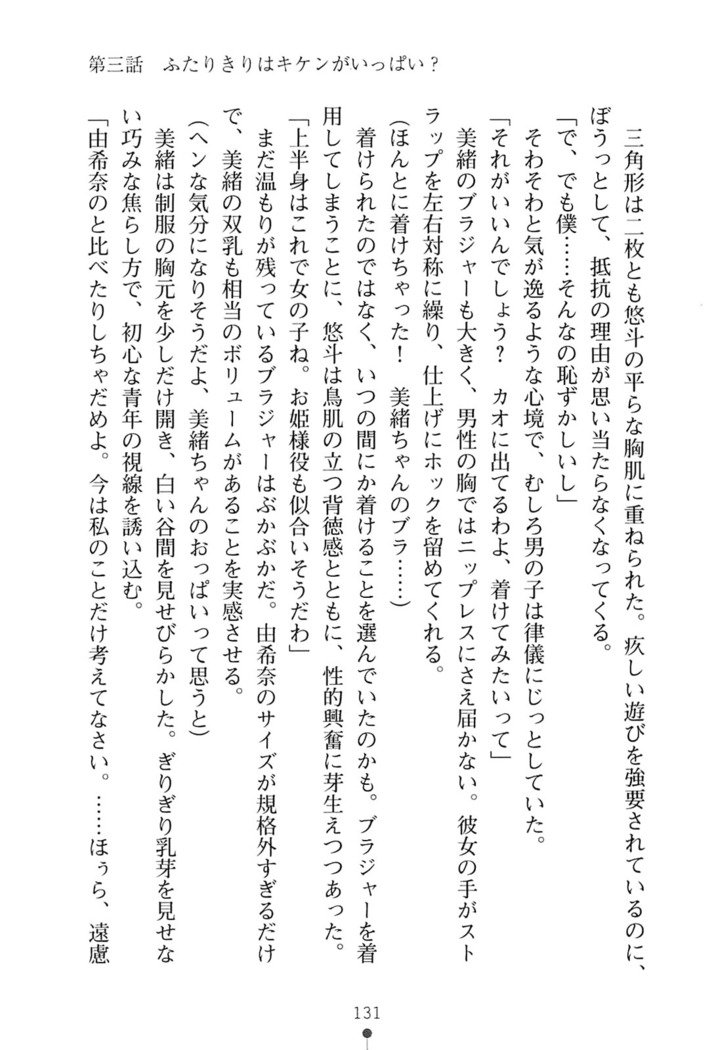 第三話　ふたりきりはキケンがいっぱい？
三角形は二枚とも悠斗の平らな胸肌に重ねられた。疚しい遊びを強要されているのに、
ぼうっとして、抵抗の理由が思い当たらなくなってくる。
「で、でも僕……そんなの恥ずかしいし」
そわそわと気が逸るような心境で、むしろ男の子は律儀にじっとしていた。
「それがいいんでしょう？　カオに出てるわよ、着けてみたいって」
美緒のブラジャーも大きく、男性の胸ではニップレスにさえ届かない。彼女の手がスト
ラップを左右対称に繰り、仕上げにホックを留めてくれる。
（ほんとに着けちゃった！　美緒ちゃんのブラ……）
着けられたのではなく、いつの間にか着けることを選んでいたのかも。ブラジャーを着
用してしまうことに、悠斗は鳥肌の立つ背徳感とともに、性的興奮に芽生えつつあった。
「上半身はこれで女の子ね。お姫様役も似合いそうだわ」
まだ温もりが残っているブラジャーはぶかぶかだ。由希奈のサイズが規格外すぎるだけ
で、美緒の双乳も相当のボリュームがあることを実感させる。
（ヘンな気分になりそうだよ、美緒ちゃんのおっぱいって思うと）
美緒は制服の胸元を少しだけ開き、白い谷間を見せびらかした。ぎりぎり乳芽を見せな
い巧みな焦らし方で、初心な青年の視線を誘い込む。
「由希奈のと比べたりしちゃだめよ。今は私のことだけ考えてなさい。……ほぅら、遠慮
131